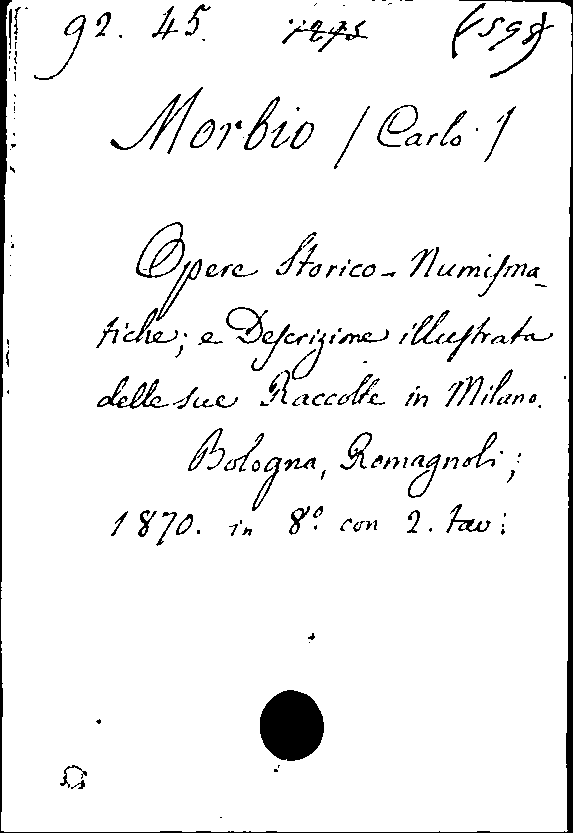 92. 45. (598)
Morbio / Carlo /
Opere Storico-Numiſma-
tiche; e Deſcrizione illuſtrata
delle sue Raccolte in Milano.
Bologna, Romagnoli;
1870. in 8.º con 2. tav: